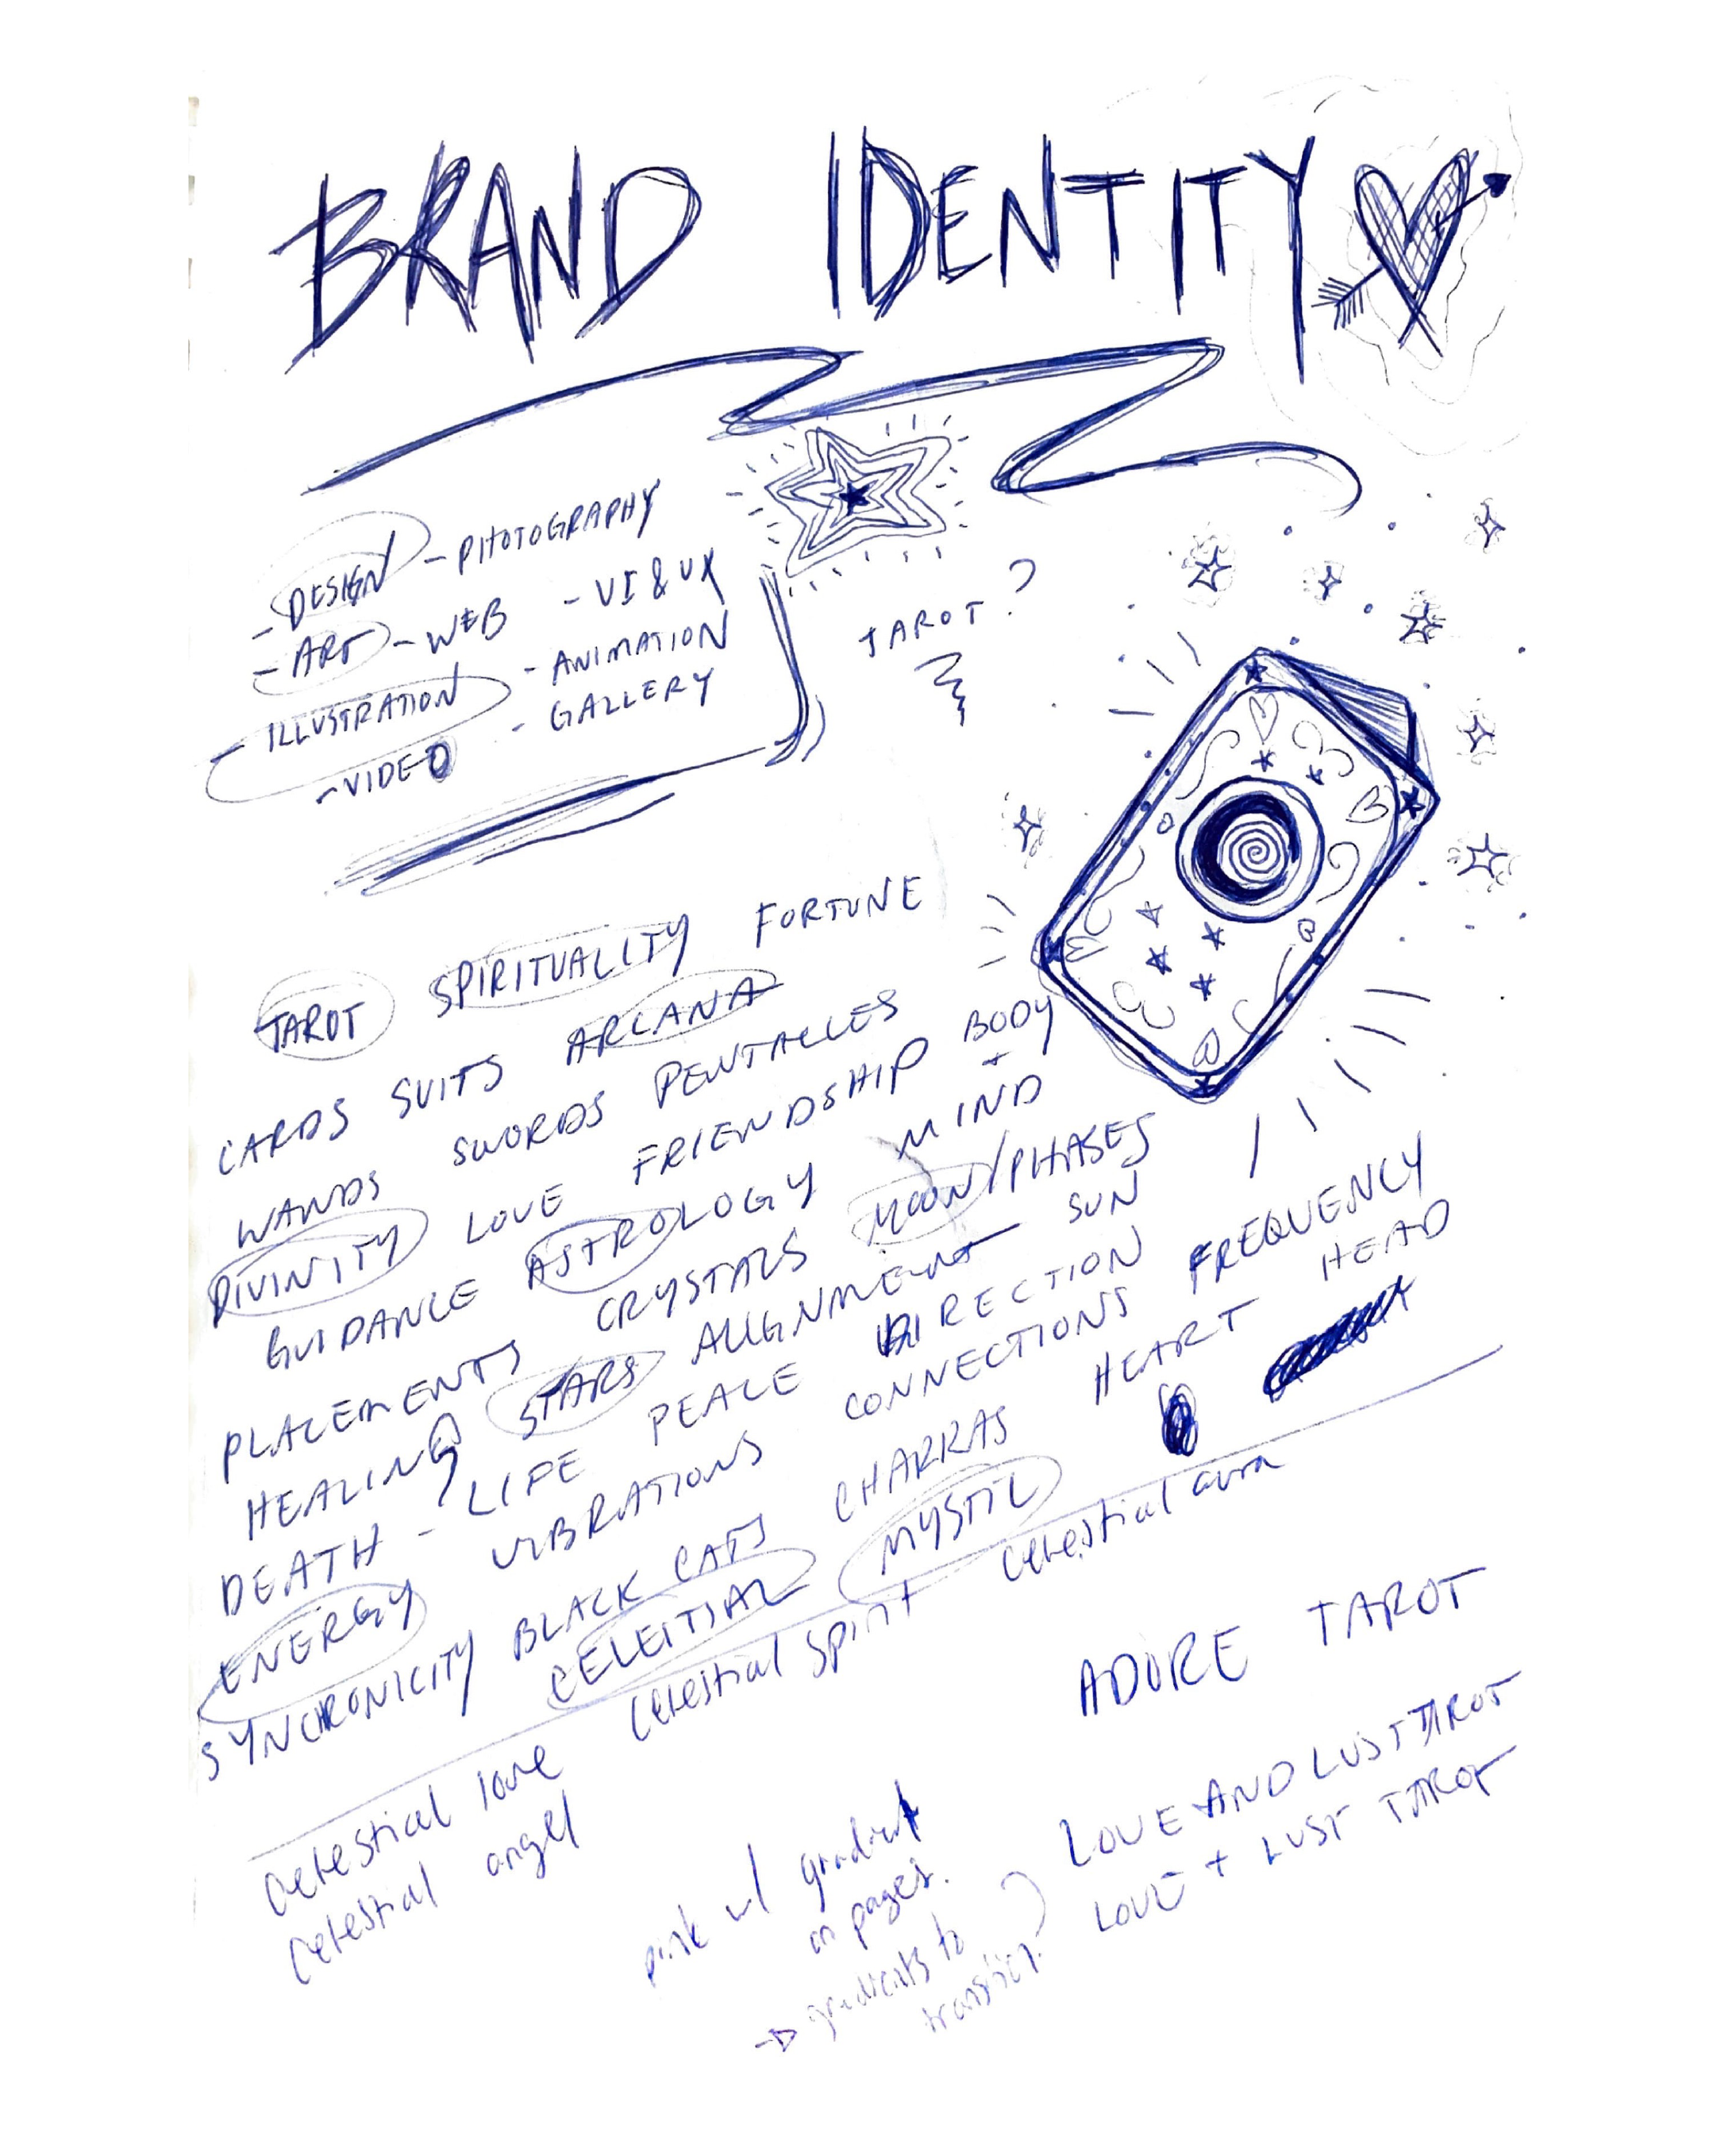 BRAND IDENTITY
- DESIGN - PHOTOGRAPHY
- ART - WEB - UI & UX
- ILLUSTRATION - ANIMATION
- VIDEO - GALLERY
TAROT?
TAROT SPIRITUALITY FORTUNE
CARDS SUITS ARCANA
WANDS SWORDS PENTACLES
DIVINITY LOVE FRIENDSHIP BODY
+
GUIDANCE ASTROLOGY MIND
PLACEMENTS CRYSTALS MOON/PHASES
HEALING STARS ALIGNMENT SUN
DEATH - LIFE PEACE DIRECTION
ENERGY VIBRATIONS CONNECTIONS FREQUENCY
SYNCHRONICITY BLACK CATS CHAKRAS HEART HEAD
CELESTIAL MYSTIC
Celestial love Celestial spirit Celestial aura
Celestial angel
ADORE TAROT
LOVE AND LUST TAROT
LOVE + LUST TAROT
pink w/ gradient
on pages.
gradients to
transition.